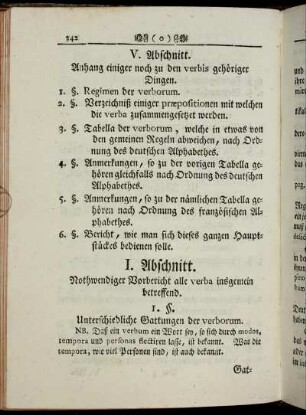 242 ( o )
V. Abschnitt.
Anhang einiger noch zu den verbis gehöriger
Dingen.
1. §. Regimen der verborum.
2. §. Verzeichniß einiger præpositionen mit welchen
die verba zusammengesetzet werden.
3. §. Tabella der verborum, welche in etwas von
den gemeinen Regeln abweichen, nach Ord-
nung des deutschen Alphabethes.
4. §. Anmerkungen, so zu der vorigen Tabella ge-
hören gleichfalls nach Ordnung des deutschen
Alphabethes.
5. §. Anmerkungen, so zu der nämlichen Tabella ge-
hören nach Ordnung des französischen Al-
phabethes.
6. §. Bericht, wie man sich dieses ganzen Haupt-
stückes bedienen solle.
I. Abschnitt.
Nothwendiger Vorbericht alle verba insgemein
betreffend.
1. §.
Unterschiedliche Gattungen der verborum.
NB. Daß ein verbum ein Wort sey, so sich durch modos,
tempora und personas flectiren lasse, ist bekannt. Was die
tempora, wie viel Personen sind, ist auch bekannt.
Gat-